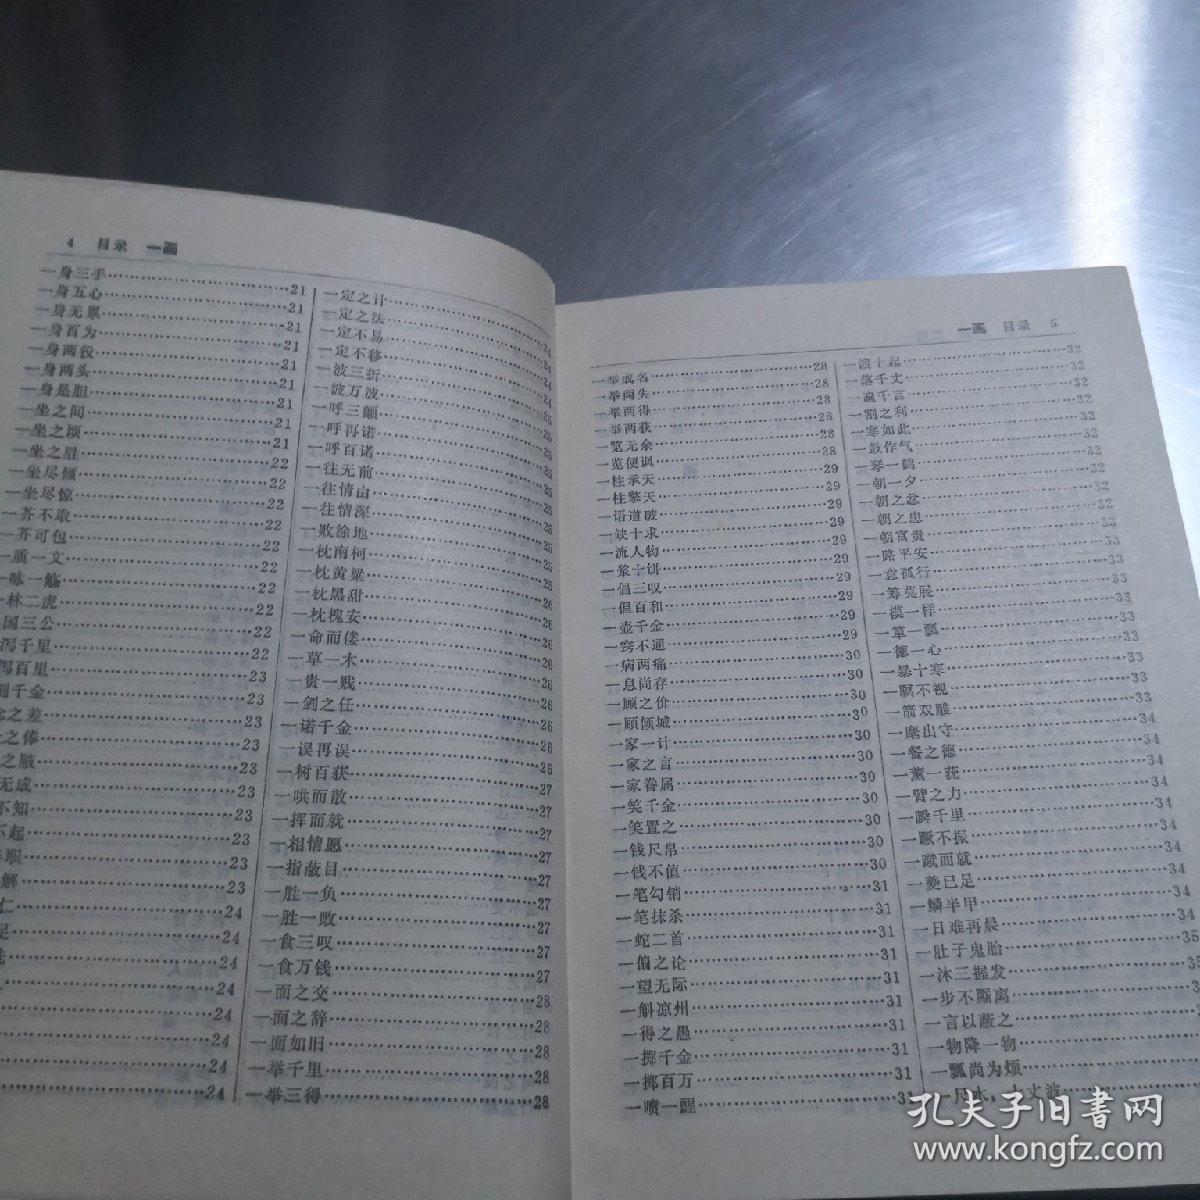 4 目录 一画
一身三手……21
一身五心……21
一身无累……21
一身百为……21
一身两役……21
一身两头……21
一身是胆……21
一坐之间……21
一坐之顷……21
一坐之胜……22
一坐尽倾……22
一坐尽惊……22
一芥不取……22
一芥可包……22
一质一文……22
一咏一觞……22
一林二虎……22
国三公……22
泻千里……22
泻百里……23
刻千金……23
念之差……23
之俸……23
之腋……23
无成……23
不知……23
不起……23
职……23
解……23
仁……24
足……24
……24
……24
……24
……24
……24
……24
一定之计……24
一定之法……24
一定不易……24
一定不移……24
一波三折……24
一波万波……24
一呼三颠……25
一呼再诺……25
一呼百诺……25
一往无前……25
一往情由……25
一往情深……25
一败涂地……25
一枕南柯……25
一枕黄粱……25
一枕黑甜……26
一枕槐安……26
一命而偻……26
一草一木……26
一贵一贱……26
一剑之任……26
一诺千金……26
一误再误……26
一树百获……26
一哄而散……27
一挥而就……27
一相情愿……27
一指蔽目……27
一胜一负……27
一胜一败……27
一食三叹……27
一食万钱……27
一面之交……28
一面之辞……28
一面如旧……28
一举千里……28
一举三得……28
一画 目录 5
一举成名……28
一举两失……28
一举两得……28
一举两获……28
一览无余……28
一览便讽……28
一柱承天……29
一柱擎天……29
一语道破……29
一殃十求……29
一流人物……29
一浆十饼……29
一倡三叹……29
一倡百和……29
一壶千金……29
一窍不通……29
一病两痛……30
一息尚存……30
一顾之价……30
一顾倾城……30
一家一计……30
一家之言……30
一家眷属……30
一笑千金……30
一笑置之……30
一钱尺帛……30
一钱不值……30
一笔勾销……31
一笔抹杀……31
一蛇二首……31
一偏之论……31
一望无际……31
一斛凉州……31
一得之愚……31
一掷千金……31
一掷百万……31
一喷一醒……31
一馈十起……32
一落千丈……32
一疏千言……32
一割之利……32
一寒如此……32
一鼓作气……32
一琴一鹤……32
一朝一夕……32
一朝之忿……32
一朝之患……33
一朝富贵……33
一路平安……33
一意孤行……33
一筹莫展……33
一模一样……33
一箪一瓢……33
一德一心……33
一暴十寒……33
一瞑不视……33
一箭双雕……33
一麾出守……34
一餐之德……34
一薰一莸……34
一臂之力……34
一瞬千里……34
一蹶不振……34
一蹴而就……34
一夔已足……34
一鳞半甲……34
一日难再晨……34
一肚子鬼胎……35
一沐三握发……35
一步不厮离
一言以蔽之
一物降一物
一瓢尚为烦
一尺水，十丈波
孔夫子旧书网
www.kongfz.com